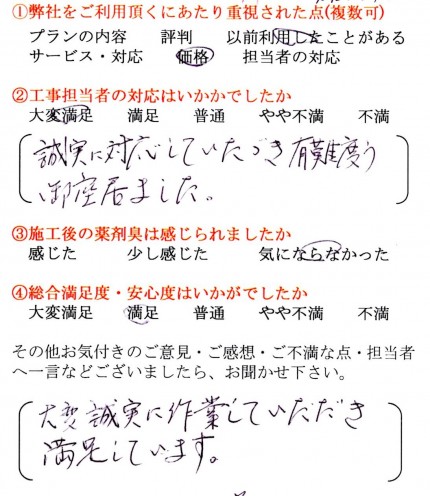 ①弊社をご利用頂くにあたり重視された点(複数可)
プランの内容 評判 以前利用したことがある
サービス・対応 価格 担当者の対応
②工事担当者の対応はいかかでしたか
大変満足 満足 普通 やや不満 不満
誠実に対応していただき有難度う
御座居ました。
③施工後の薬剤臭は感じられましたか
感じた 少し感じた 気にならなかった
④総合満足度・安心度はいかがでしたか
大変満足 満足 普通 やや不満 不満
その他お気付きのご意見・ご感想・ご不満な点・担当者
へ一言などございましたら、お聞かせ下さい。
大変誠実に作業していただき
満足しています。